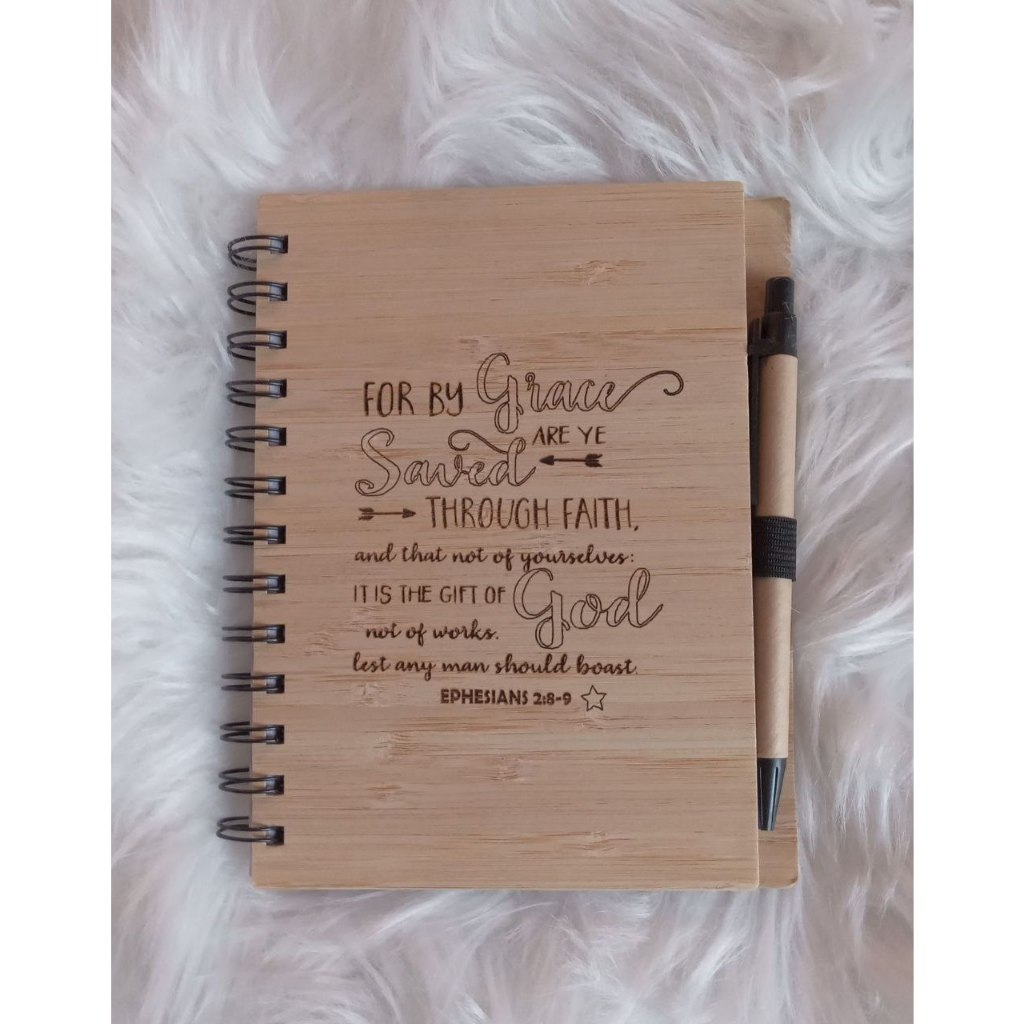 FOR BY Grace
ARE YE
Saved
THROUGH FAITH,
and that not of yourselves:
IT IS THE GIFT OF God
not of works.
lest any man should boast.
EPHESIANS 2:8-9